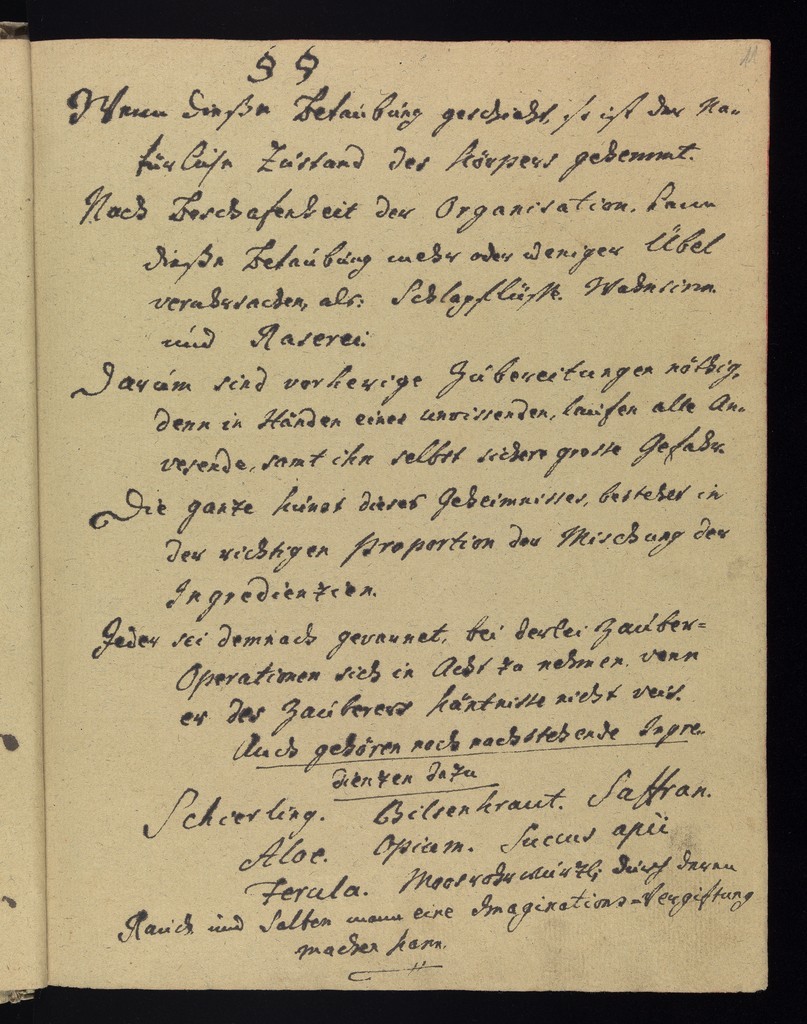 § §
11
Wenn dieße Betaübüng geschieht, so ist der Na-
türliche Züstand des Körpers gehemmt.
Nach Beschafenheit der Organisation, kann
dieße Betaübüng mehr oder weniger Übel
veruhrsachen, als: Schlagflüße. Wahnsinn.
ünd Raserei.
Darüm sind vorherige Zübereitungen nöthig,
denn in Händen eines unwissenden, laufen alle An-
wesende, samt ihn selbst sichere grosse Gefahr.
Die ganze Künst dieses Geheimnisses, bestehet in
der richtigen Proportion der Mischung der
Ingredienzien.
Jeder sei demnach gewarnet, bei derlei Zaüber-
Operationen sich in Acht zu nehmen, wenn
er des Zaüberers Käntnisse nicht weis.
Auch gehören noch nachstehende Ingre-
dienzen dazu
Schierling. Bilsenkraut. Saffran.
Aloe. Opium. Succus apii
Ferula. Moosrohrwürzl; dürch deren
Rauch ünd Salben mann eine Imaginations-Vergiftung
machen kann.